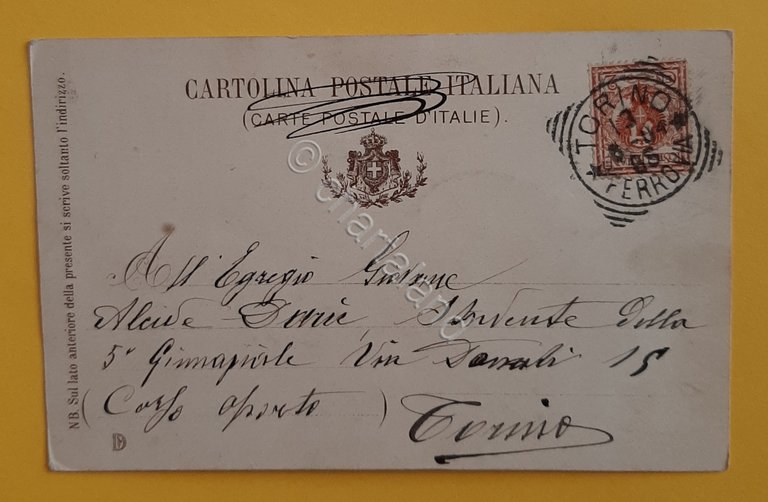 CARTOLINA POSTALE ITALIANA
(CARTE POSTALE D'ITALIE).
TORINO
FERROVIA
NB. Sul lato anteriore della presente si scrive soltanto l'indirizzo.
© charlaland
All' Egregio Giovane
Alcide Studente della
5ª Ginnasiale Via 15
(Corso oporto)
Torino